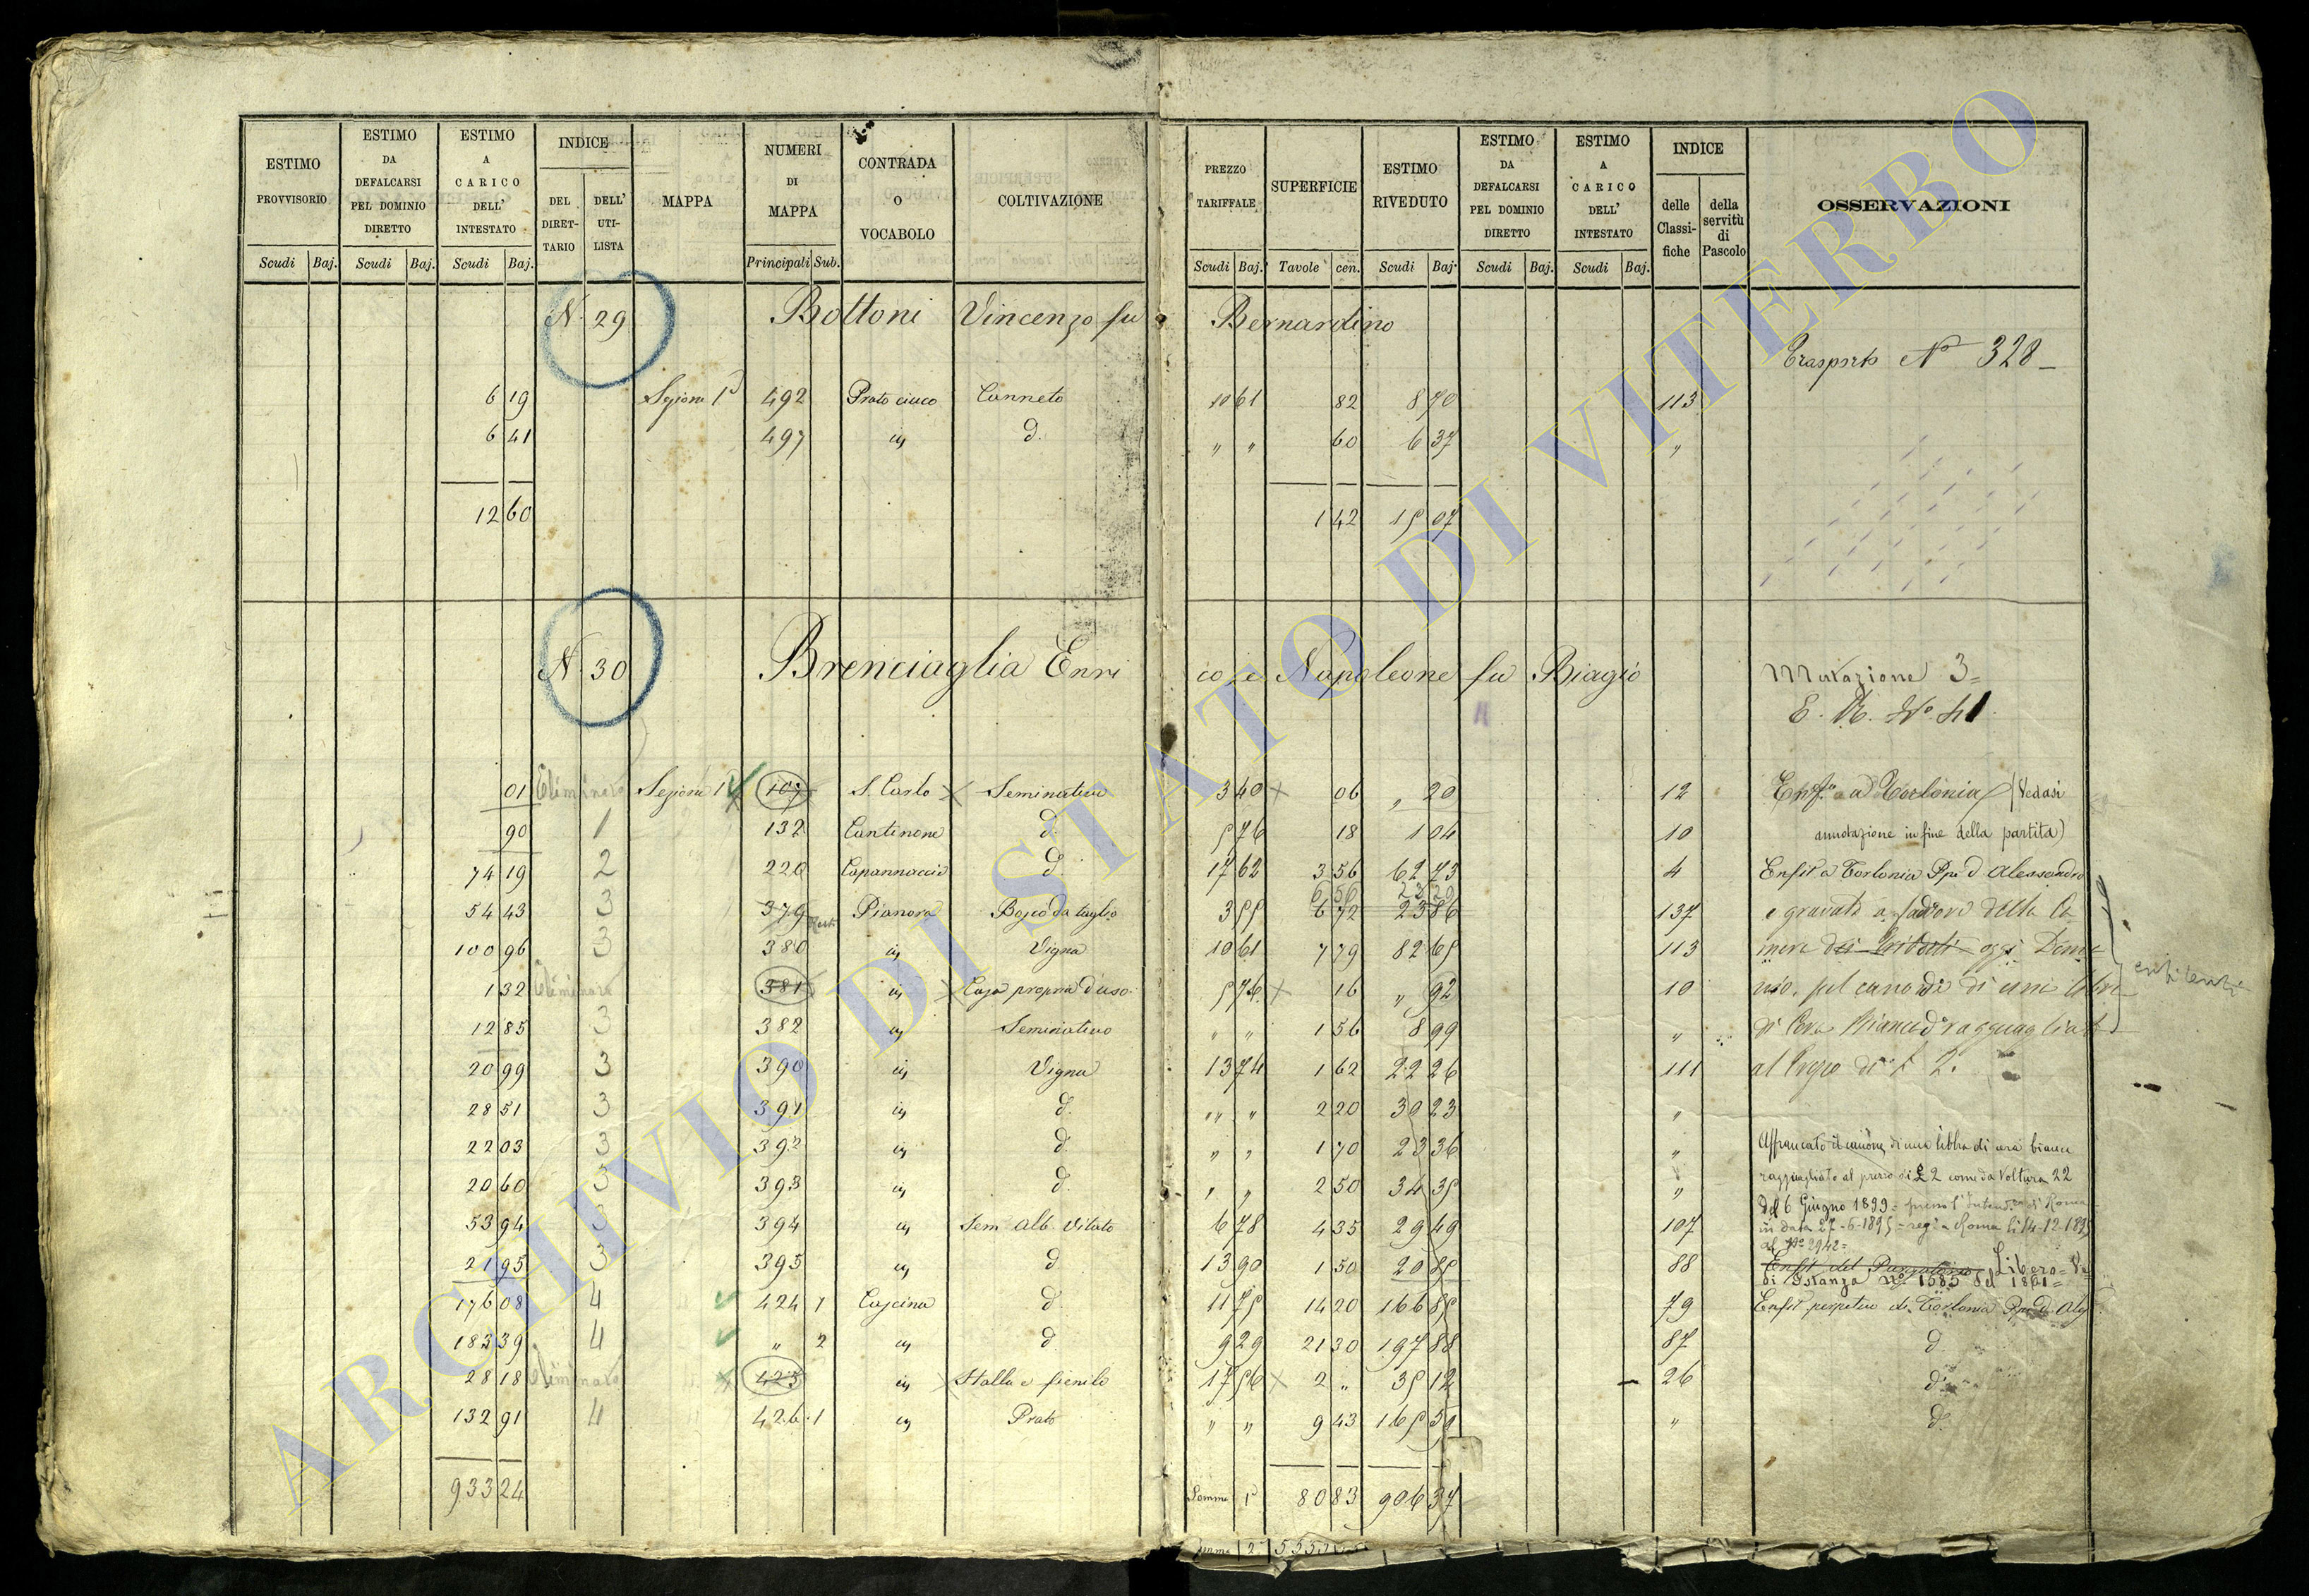 ESTIMO PROVVISORIO Scudi Baj.
ESTIMO DA DEFALCARSI PEL DOMINIO DIRETTO Scudi Baj.
ESTIMO A CARICO DELL' INTESTATO Scudi Baj.
INDICE DEL DIRET- TARIO DELL' UTI- LISTA
MAPPA
NUMERI DI MAPPA Principali Sub.
CONTRADA O VOCABOLO
COLTIVAZIONE
PREZZO TARIFFALE Scudi Baj.
SUPERFICIE Tavole cen.
ESTIMO RIVEDUTO Scudi Baj.
ESTIMO DA DEFALCARSI PEL DOMINIO DIRETTO Scudi Baj.
ESTIMO A CARICO DELL' INTESTATO Scudi Baj.
INDICE delle Classi- fiche della servitù di Pascolo
OSSERVAZIONI
N. 29 Bottoni Vincenzo fu Bernardino
Trasporto N° 328
6 19 Sezione 1ª 492 Prato cieco Canneto 10 61 82 8 70 113
6 41 497 " d. " " 60 6 37 "
12 60 1 42 15 07
N. 30 Brenciaglia Enrico e Napoleone fu Biagio Mutazione 3
01 Eliminato Sezione 1ª 107 S. Carlo Seminativo 3 40 06 " 20 12 Enf. a Torlonia (Vedasi
90 1 132 Cantinone d. 5 76 18 1 04 10 annotazione in fine della partita)
74 19 2 220 Capannaccio d 17 62 3 56 62 73 4 Enfit a Torlonia Ppe D Alessandro
6 56 23 29
54 43 3 379 Pianora Bosco da taglio 3 55 6 72 23 86 137 e gravato a favore della Ca
100 96 3 380 " Vigna 10 61 7 79 82 65 113 mera dei Tributi oggi Dema
1 32 Eliminato 381 " Casa propria d'uso 5 76 16 " 92 10 nio pel canone di una libra
12 85 3 382 " Seminativo " " 1 56 8 99 " di Cera Bianca ragguagliata
20 99 3 390 " Vigna 13 74 1 62 22 26 111 al Prezzo di £ 2.
28 51 3 391 " d. " " 2 20 30 23 "
22 03 3 392 " d. " " 1 70 23 36 " Affrancato il canone di una libbra di cera bianca
20 60 3 393 " d. " " 2 50 34 35 " ragguagliato al prezzo di £ 2 come da Voltura 22
del 6 Giugno 1899
53 94 3 394 " Sem. Alb. Vitato 6 78 4 35 29 49 107 in data 27-6-1895 = reg. a Roma li 14-12-1895
al N° 2942 =
21 95 3 395 " d 13 90 1 50 20 85 88 Libero = Ve
di Istanza n° 1685 del 1861 =
176 08 4 424 1 Cascina d. 11 75 14 20 166 85 79 Enfit perpetua di Torlonia Ppe D. Aless
183 39 4 " 2 " d 9 29 21 30 197 88 87 d
28 18 Eliminato 425 " Stalla e fienile 17 56 2 " 35 12 26 d.
132 91 4 426 1 " Prato " " 9 43 165 59 " d.
933 24 Somma 1ª 80 83 906 37
ARCHIVIO DI STATO DI VITERBO